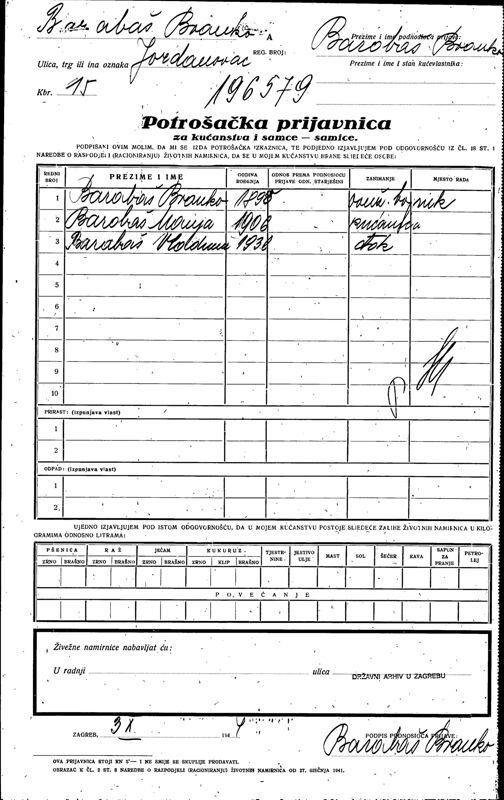 Barabaš Branko
A
Prezime i ime podnosioca prijave:
Barabaš Branko
Ulica, trg ili ina oznaka Jordanovac
REG. BROJ:
Prezime i ime i stan kućevlastnika:
Kbr. 15
196579
Potrošačka prijavnica
za kućanstva i samce — samice.
POTPISANI OVIM MOLIM, DA MI SE IZDA POTROŠAČKA ISKAZNICA, TE POJEDNO IZJAVLJUJEM POD ODGOVORNOŠĆU IZ ČL. 18 ST. 1
NAREDBE O RASPODJELI (RACIONIRANJU) ŽIVOTNIH NAMIRNICA, DA SE U MOJEM KUĆANSTVU HRANE SLIJEDEĆE OSOBE:
REDNI BROJ PREZIME I IME GODINA ROĐENJA ODNOS PREMA PODNOSIOCU PRIJAVE ODN. STARJEŠINI ZANIMANJE MJESTO RADA
1 Barabaš Branko 1898
2 Barabaš Marija 1906 kućanica
3 Barabaš 1938 đak
4
5
6
7
8
9
10
PRIRAST: (izpunjava vlast)
1
2
ODPAD: (izpunjava vlast)
1
2
UJEDNO IZJAVLJUJEM POD ISTOM ODGOVORNOŠĆU, DA U MOJEM KUĆANSTVU POSTOJE SLIJEDEĆE ZALIHE ŽIVOTNIH NAMIRNICA U KILO-
GRAMIMA ODNOSNO LITRAMA:
PŠENICA RAŽ JEČAM KUKURUZ TJESTE-NINE JESTIVO ULJE MAST SOL ŠEĆER KAVA SAPUN ZA PRANJE PETRO-LEJ
ZRNO BRAŠNO ZRNO BRAŠNO ZRNO BRAŠNO ZRNO KLIP BRAŠNO
POVEĆANJE
Živežne namirnice nabavljat ću:
U radnji ulica
DRŽAVNI ARHIV U ZAGREBU
ZAGREB, 3 X 194
POTPIS PODNOSIOCA PRIJAVE:
Barabaš Branko
OVA PRIJAVNICA STOJI KN 5— I NE SMIJE SE SKUPLJE PRODAVATI.
OBRAZAC K ČL. 2 ST. 5 NAREDBE O RAZPODJELI (RACIONIRANJU) ŽIVOTNIH NAMIRNICA OD 27. SIEČNJA 1941.